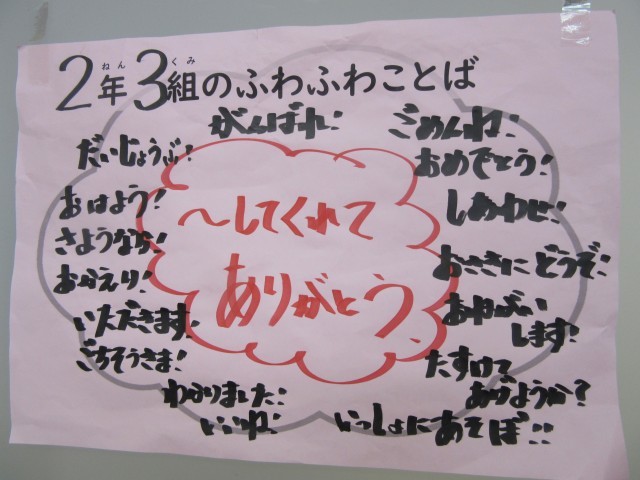 2年3組のふわふわことば
ねん くみ
がんばれ!
ごめんね!
だいじょうぶ!
おめでとう!
おはよう!
しあわせ!
さようなら!
おさきにどうぞ!
おかえり!
おねがい
します!
いただきます。
たすけて
あげようか?
ごちそうさま!
わかりました!
いいね!
いっしょにあそぼ!!
〜してくれて
ありがとう。